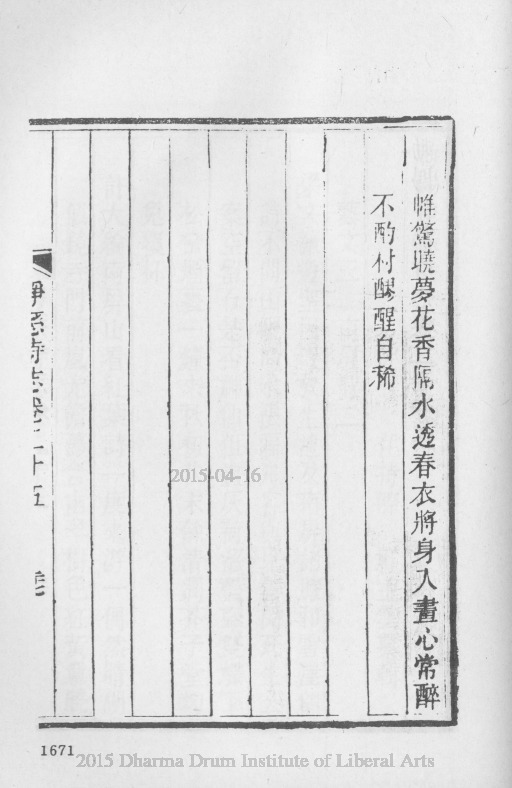 帷驚曉夢花香隔水透春衣將身入畫心常醉
不酌村醪醒自稀
淨慈寺志卷二十五
2015-04-16
1671
2015 Dharma Drum Institute of Liberal Arts